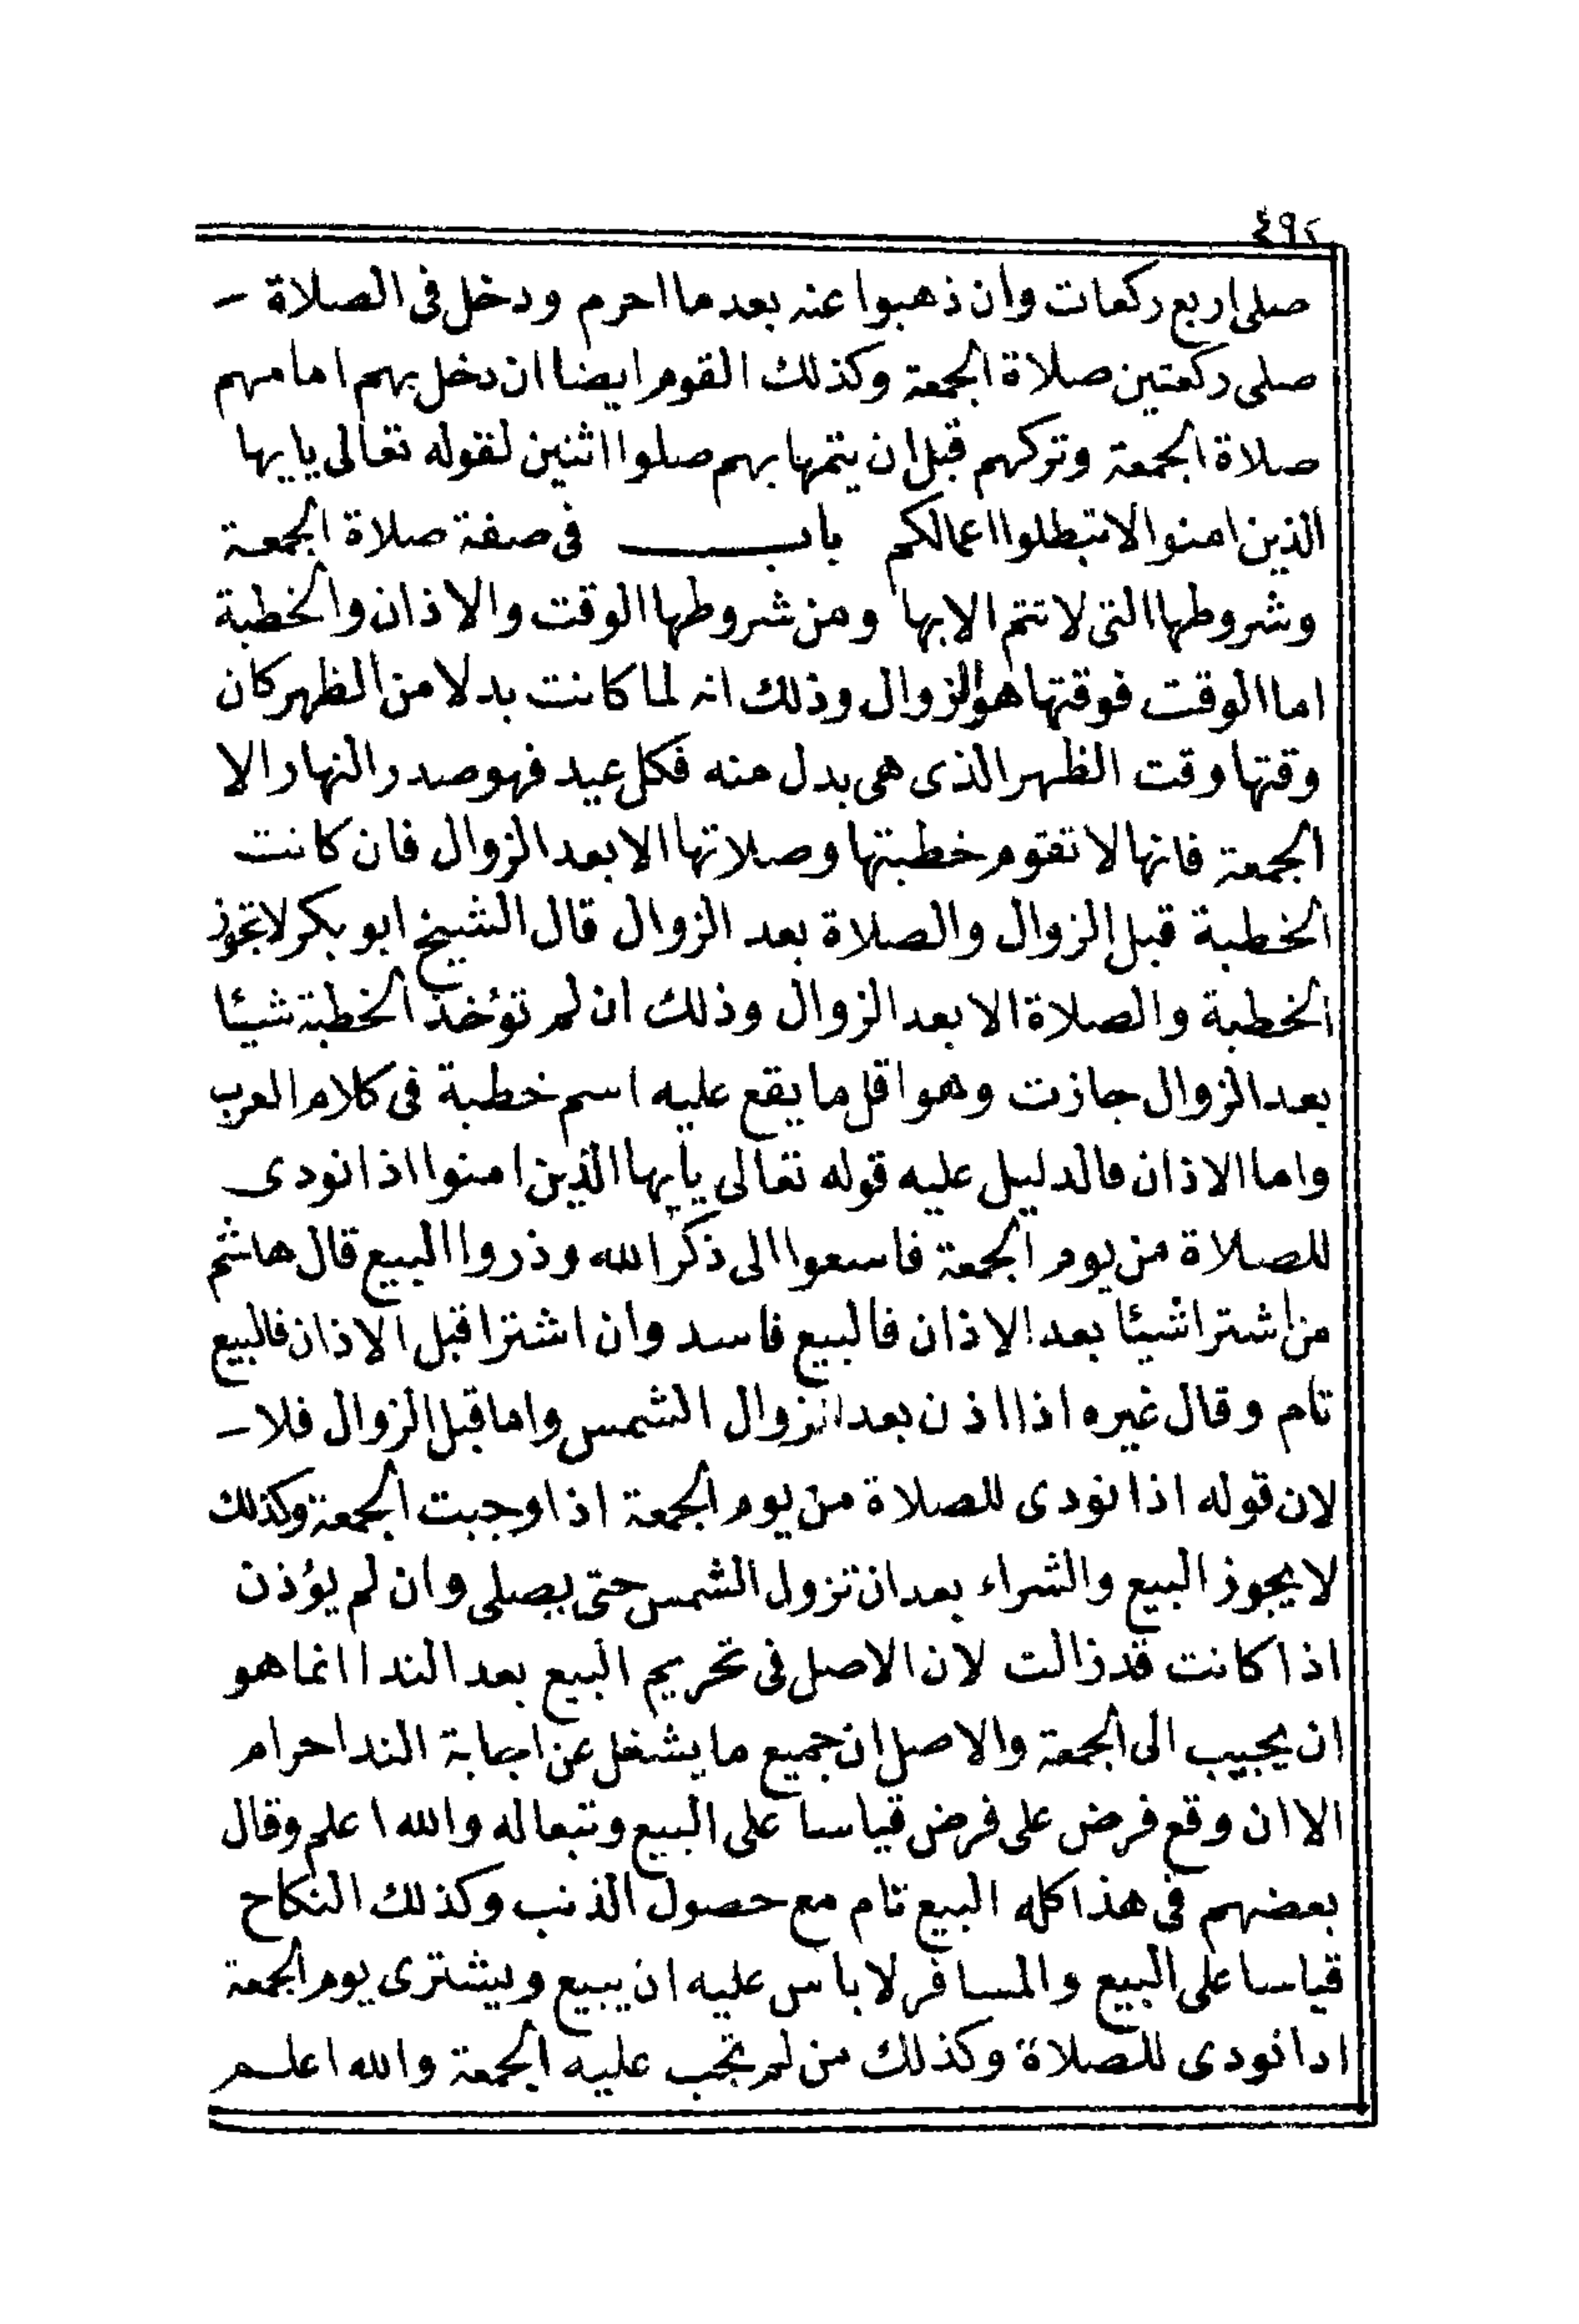 ٤٩٢
صلى اربع ركعات وان ذهبوا عنه بعدما احرم ودخل فى الصلاة -
صلى ركعتين صلاة الجمعة وكذلك القوم ايضا ان دخل بهم امامهم
صلاة الجمعة وتركهم قبل ان يتمها بهم صلوا اثنين لقوله تعالى يايها
الذين امنوا لا تبطلوا اعمالكم باب فى صفة صلاة الجمعة
وشروطها التى لا تتم الا بها ومن شروطها الوقت والاذان والخطبة
اما الوقت فوقتها هو الزوال وذلك انه لما كانت بدلا من الظهر كان
وقتها وقت الظهر الذى هى بدل منه فكل عيد فهو صدر النهار الا
الجمعة فانها لا تقوم خطبتها وصلاتها الا بعد الزوال فان كانت
الخطبة قبل الزوال والصلاة بعد الزوال قال الشيخ ابو بكر لا تجوز
الخطبة والصلاة الا بعد الزوال وذلك ان لم تؤخذ الخطبة شيئا
بعد الزوال جازت وهو اقل ما يقع عليه اسم خطبة فى كلام العرب
واما الاذان فالدليل عليه قوله تعالى يايها الذين امنوا اذا نودى
للصلاة من يوم الجمعة فاسعوا الى ذكر الله وذروا البيع قال هاشم
من اشترا شيئا بعد الاذان فالبيع فاسد وان اشترا قبل الاذان فالبيع
تام وقال غيره اذا اذن بعد الزوال الشمس واما قبل الزوال فلا -
لان قوله اذا نودى للصلاة من يوم الجمعة اذا وجبت الجمعة وكذلك
لا يجوز البيع والشراء بعد ان تزول الشمس حتى يصلى وان لم يؤذن
اذا كانت قد زالت لان الاصل فى تحريم البيع بعد الندا انما هو
ان يجيب الى الجمعة والاصل ان جميع ما يشغل عن اجابة الندا حرام
الا ان وقع فرض على فرض قياسا على البيع وتبعا له والله اعلم وقال
بعضهم فى هذا كله البيع تام مع حصول الذنب وكذلك النكاح
قياسا على البيع والمسافر لا باس عليه ان يبيع ويشترى يوم الجمعة
اذا نودى للصلاة وكذلك من لم تجب عليه الجمعة والله اعلم